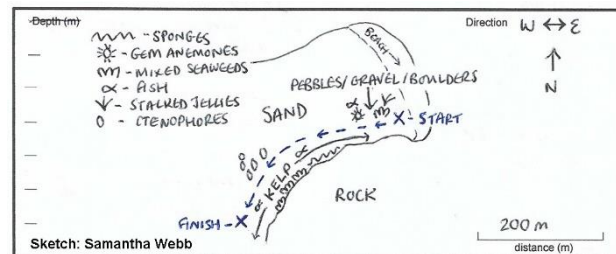 Depth (m)
Direction W ↔ E
N
- SPONGES
- GEM ANEMONES
- MIXED SEAWEEDS
- FISH
- STALKED JELLIES
- CTENOPHORES
BEACH
PEBBLES/GRAVEL/BOULDERS
SAND
X - START
KELP
ROCK
FINISH - X
200 m
distance (m)
Sketch: Samantha Webb